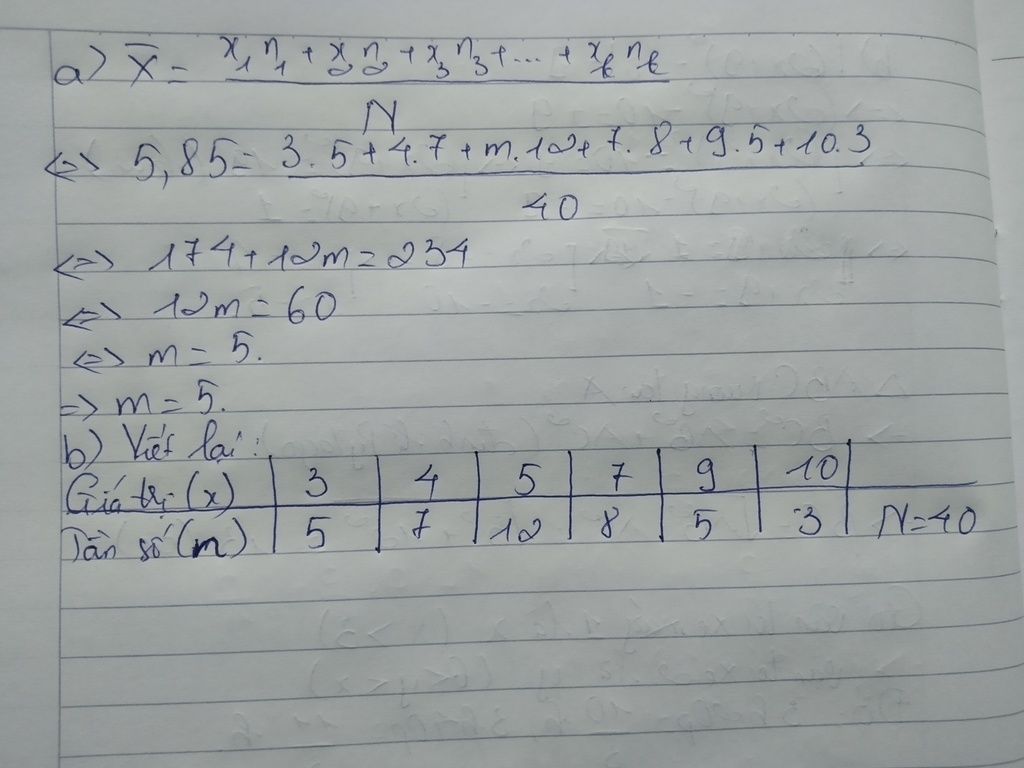 a) X̄ = x₁n₁ + x₂n₂ + x₃n₃ + ... + xₖnₖ
N
<=> 5,85 = 3.5 + 4.7 + m.12 + 7.8 + 9.5 + 10.3
40
<=> 174 + 12m = 234
<=> 12m = 60
<=> m = 5.
=> m = 5.
b) Viết lại:
Giá trị (x) 3 4 5 7 9 10
Tần số (m) 5 7 12 8 5 3 N=40